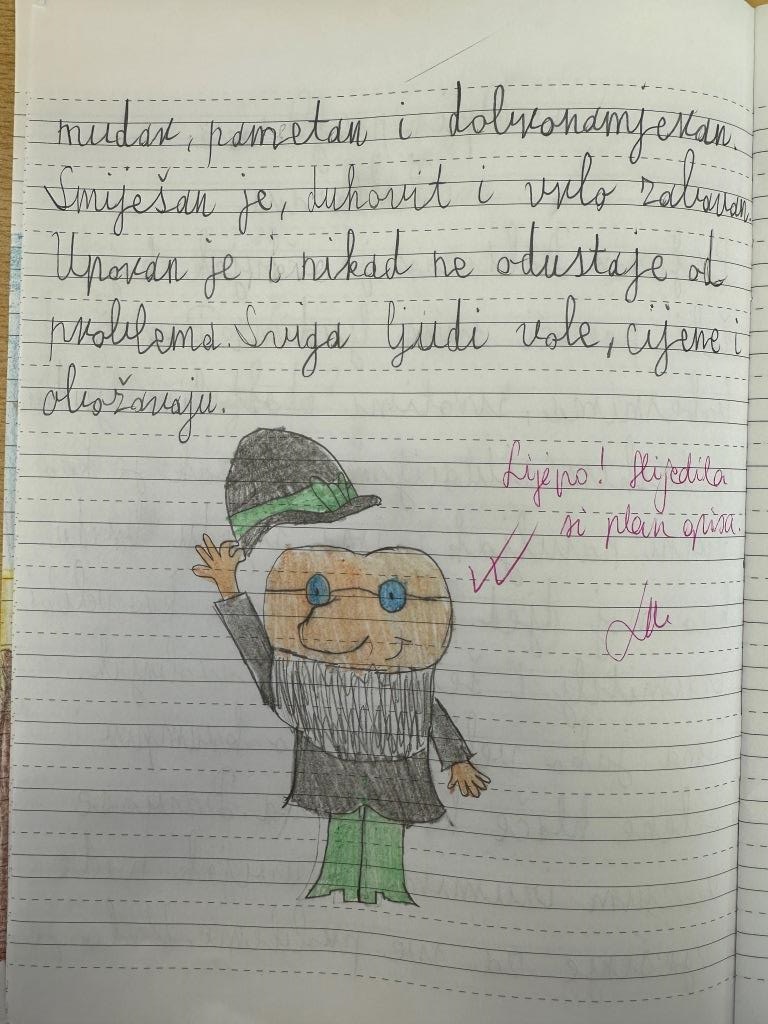 mudar, pametan i dobronamjeran.
Smiješan je, duhovit i vrlo zabavan.
Uporan je i nikad ne odustaje od
problema. Sviga ljudi vole, cijene i
obožavaju.
Lijepo! Slijedila
si plan opisa.